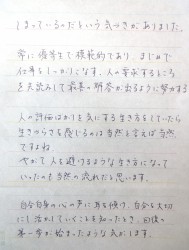 しまっているのだという気づきがありました。
常に優等生で模範的であり、まじめで
仕事をしっかりこなす。人の要求するところ
を先読みして最善の解答が出るように努力する
人の評価ばかりを気にする生き方をしていたら
生きづらさを感じるのは当然と言えば当然
ですよね
やがて人を避けるような生き方になって
いったのも当然の流れだと思います。
自分自身の心の声に耳を傾け、自分を大切
にし活かしていくことを知ったとき、回復の
第一歩が始まったような気がします。